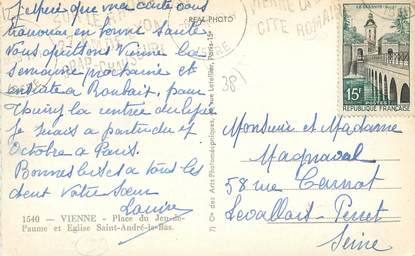 J'espère que ma carte vous
trouvera en bonne Santé
Nous quittons Vienne la
semaine prochaine et
ensuite à Roubaix, pour
la rentrée du lycée
Je serais a partir du 1
Octobre a Paris.
Bonnes bises a tous les
deux Votre Sœur
Louise
1540 — VIENNE — Place du Jeu-de-
Paume et Eglise Saint-André-le-Bas.
REAL PHOTO
Cie des Arts Photomécaniques, rue Letellier, Paris-15e
VIENNE LA
CITE ROMAINE
ISERE
(38)
LE QUESNOY
15F
POSTES
REPUBLIQUE FRANÇAISE
Monsieur et Madame
Magnaval
58 rue Carnot
Levallois-Perret
Seine